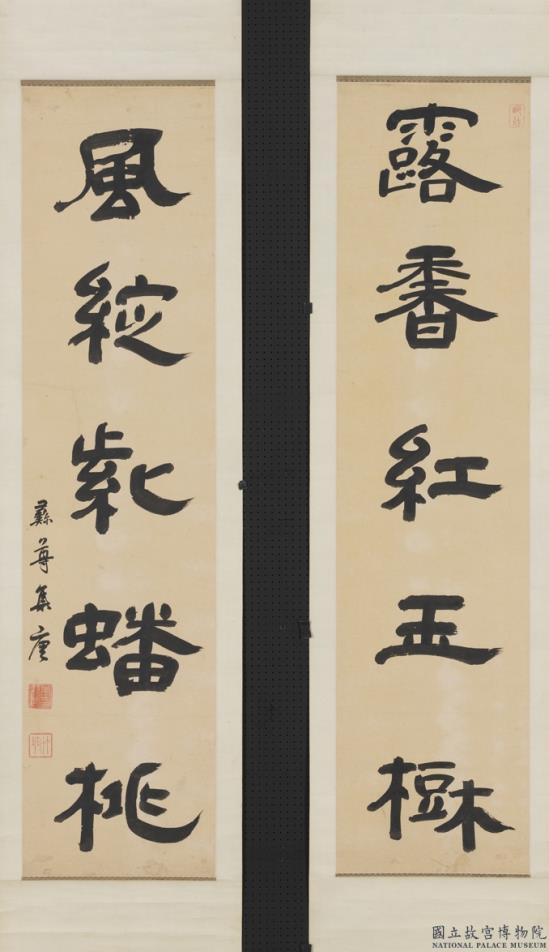 露香紅玉樹
風綻紫蟠桃
彝尊集唐
國立故宮博物院
NATIONAL PALACE MUSEUM